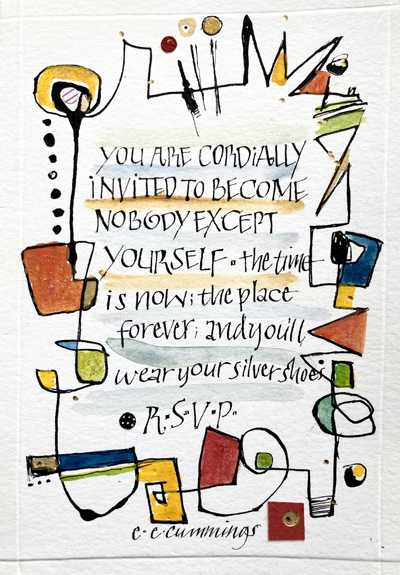 YOU ARE CORDIALLY
INVITED TO BECOME
NOBODY EXCEPT
YOURSELF • the time
is now; the place
forever; and you'll
wear your silver shoes
R•S•V•P•
e•e•cummings